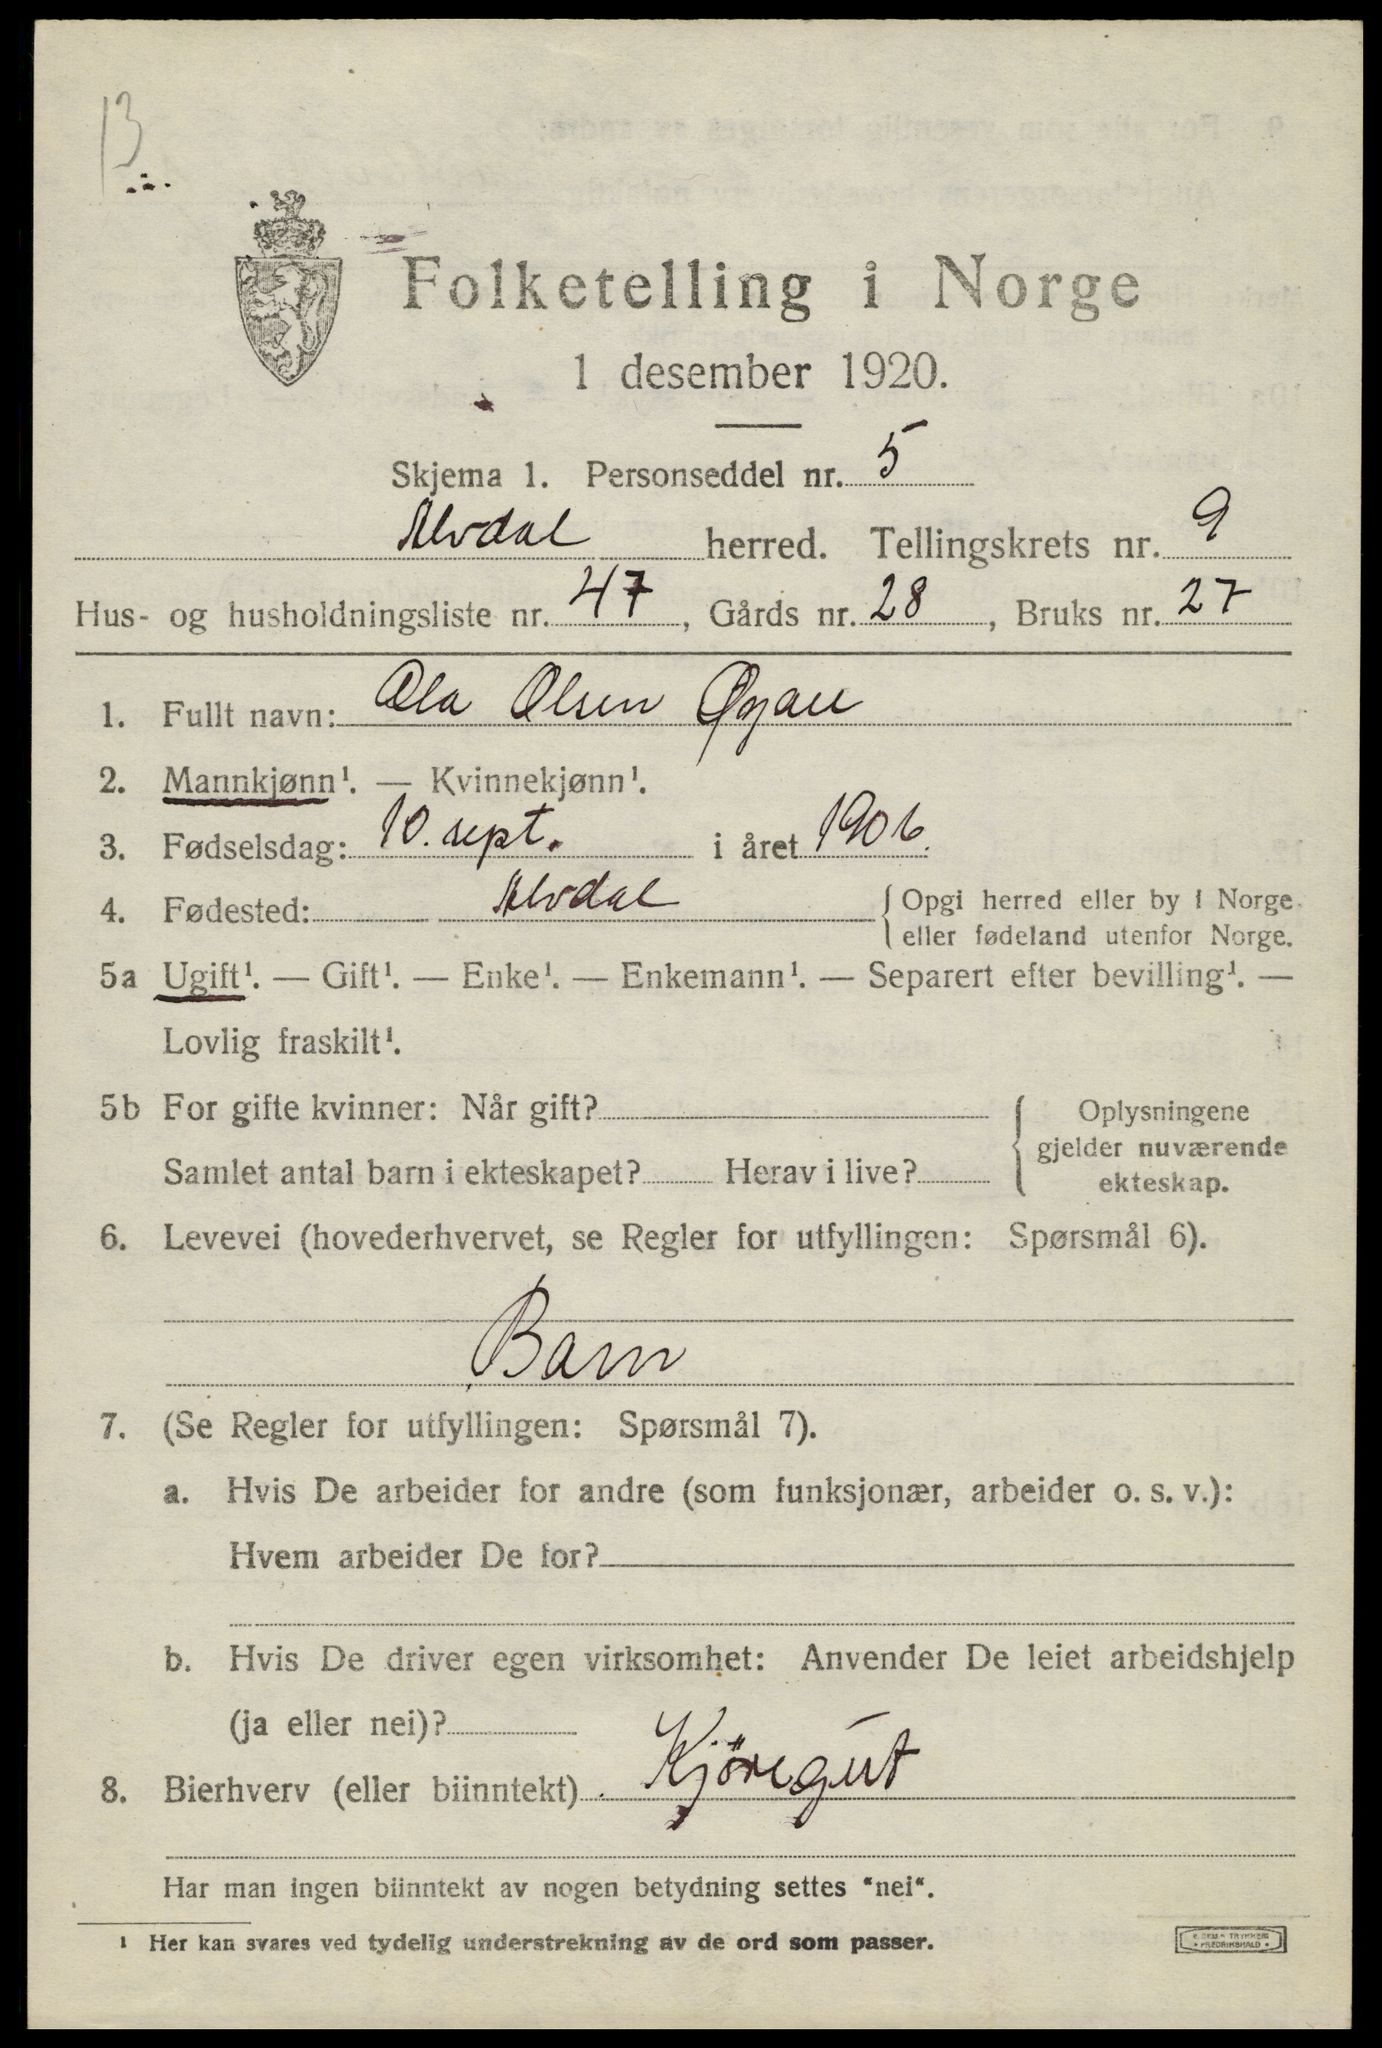 13
Folketelling i Norge
1 desember 1920.
Skjema 1. Personseddel nr. 5
Alvdal herred. Tellingskrets nr. 9
Hus- og husholdningsliste nr. 47, Gårds nr. 28, Bruks nr. 27
1. Fullt navn: Ola Olsen
2. Mannkjønn¹. — Kvinnekjønn¹.
3. Fødselsdag: 10. sept. i året 1906.
4. Fødested: Alvdal { Opgi herred eller by i Norge
eller fødeland utenfor Norge.
5a Ugift¹. — Gift¹. — Enke¹. — Enkemann¹. — Separert efter bevilling¹. —
Lovlig fraskilt¹.
5b For gifte kvinner: Når gift?
Samlet antal barn i ekteskapet? Herav i live?
Oplysningene
gjelder nuværende
ekteskap.
6. Levevei (hovederhvervet, se Regler for utfyllingen: Spørsmål 6).
Barn
7. (Se Regler for utfyllingen: Spørsmål 7).
a. Hvis De arbeider for andre (som funksjonær, arbeider o. s. v.):
Hvem arbeider De for?
b. Hvis De driver egen virksomhet: Anvender De leiet arbeidshjelp
(ja eller nei)?
8. Bierhverv (eller biinntekt) Kjöregut
Har man ingen biinntekt av nogen betydning settes "nei".
¹ Her kan svares ved tydelig understrekning av de ord som passer.